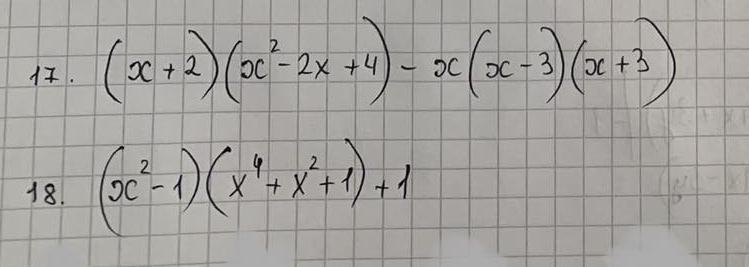 17. (x+2)(x²-2x+4)-x(x-3)(x+3)
18. (x²-1)(x⁴+x²+1)+1